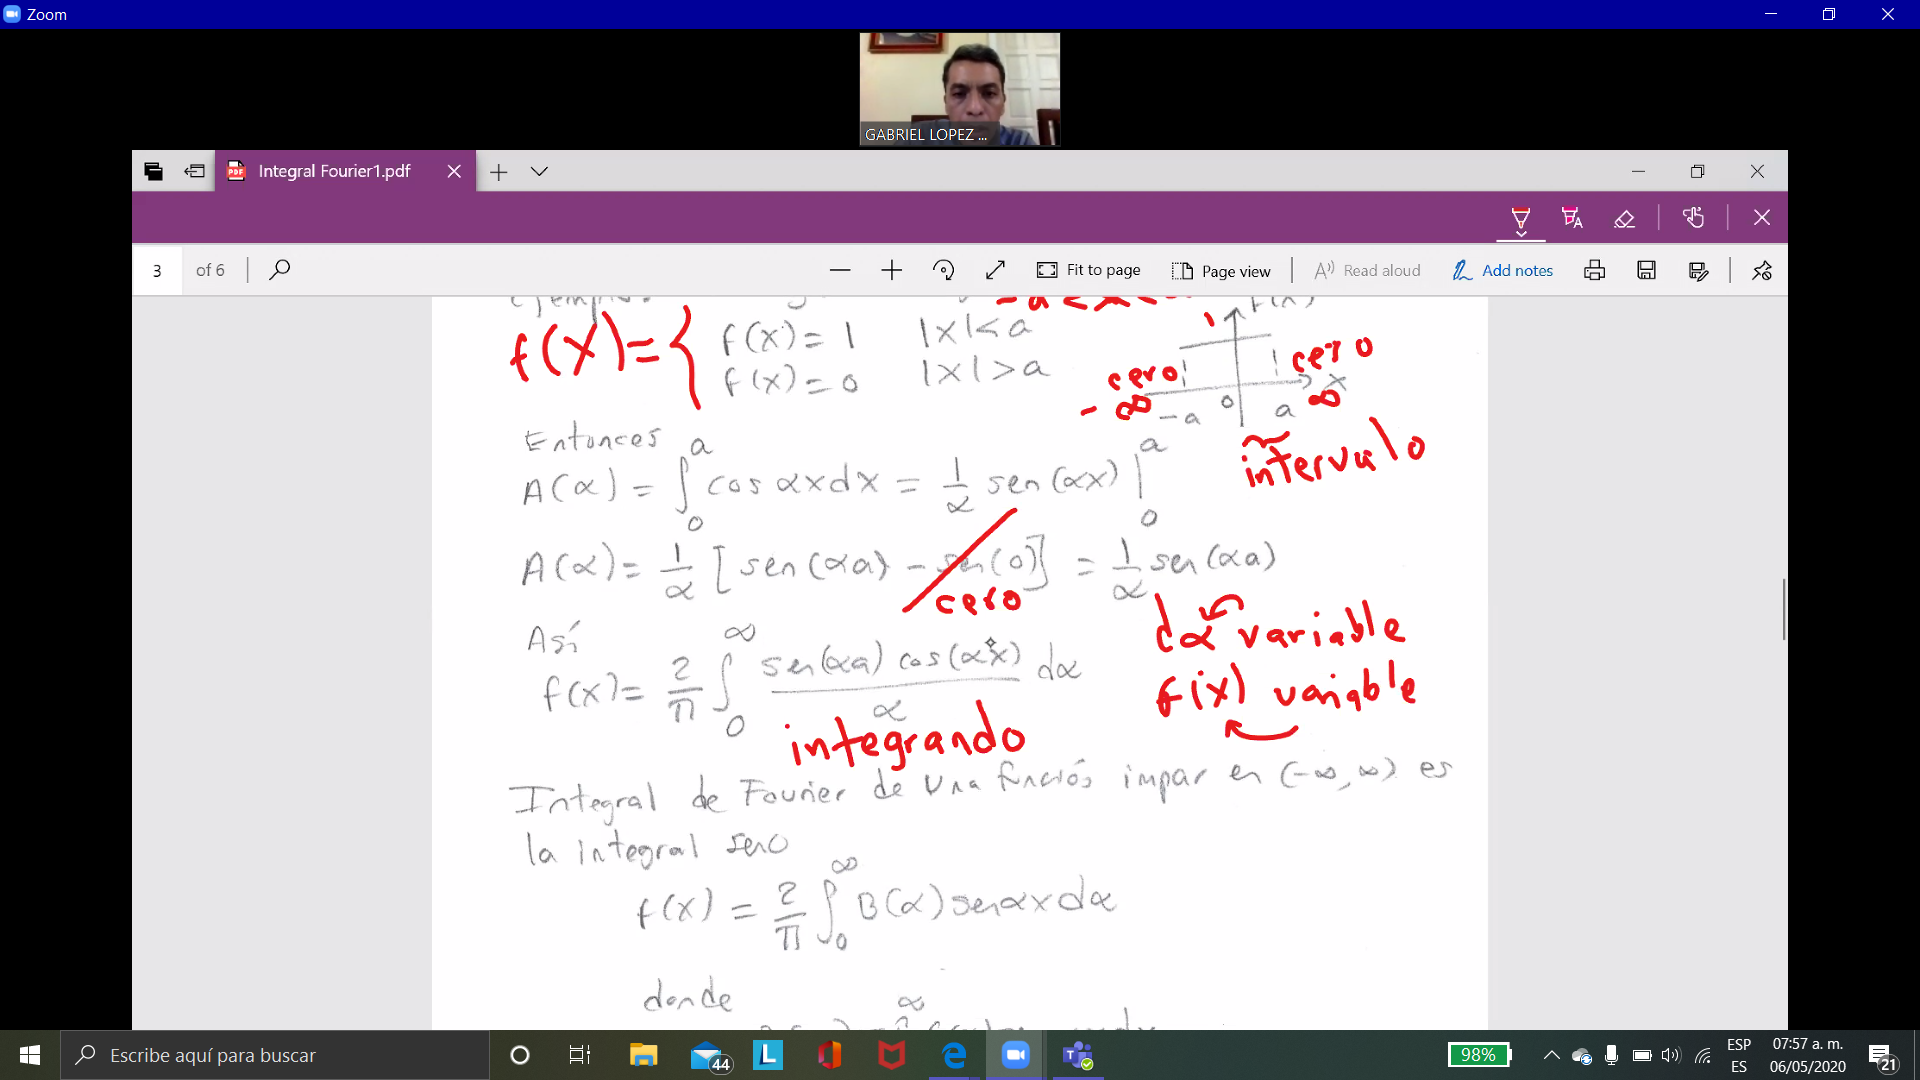 Zoom
GABRIEL LOPEZ ...
Integral Fourier1.pdf
3 of 6
Fit to page
Page view
Read aloud
Add notes
f(x)= { f(x)= 1 |x|< a
f(x)= 0 |x|> a
1
cero
cero
- ∞
∞
-a 0 a x
intervalo
Entonces
A(α) = ∫₀ᵃ cos αx dx = 1/α sen (αx) |₀ᵃ
A(α)= 1/α [sen (αa) - sen(0)] = 1/α sen(αa)
cero
dα variable
Así
f(x)= 2/π ∫₀^∞ sen(αa) cos(αx)/α dα
f(x) variable
integrando
Integral de Fourier de una función impar en (-∞, ∞) es
la integral seno
f(x) = 2/π ∫₀^∞ B(α) sen αx dα
donde
∞
Escribe aquí para buscar
44
98%
ESP
ES
07:57 a. m.
06/05/2020
21